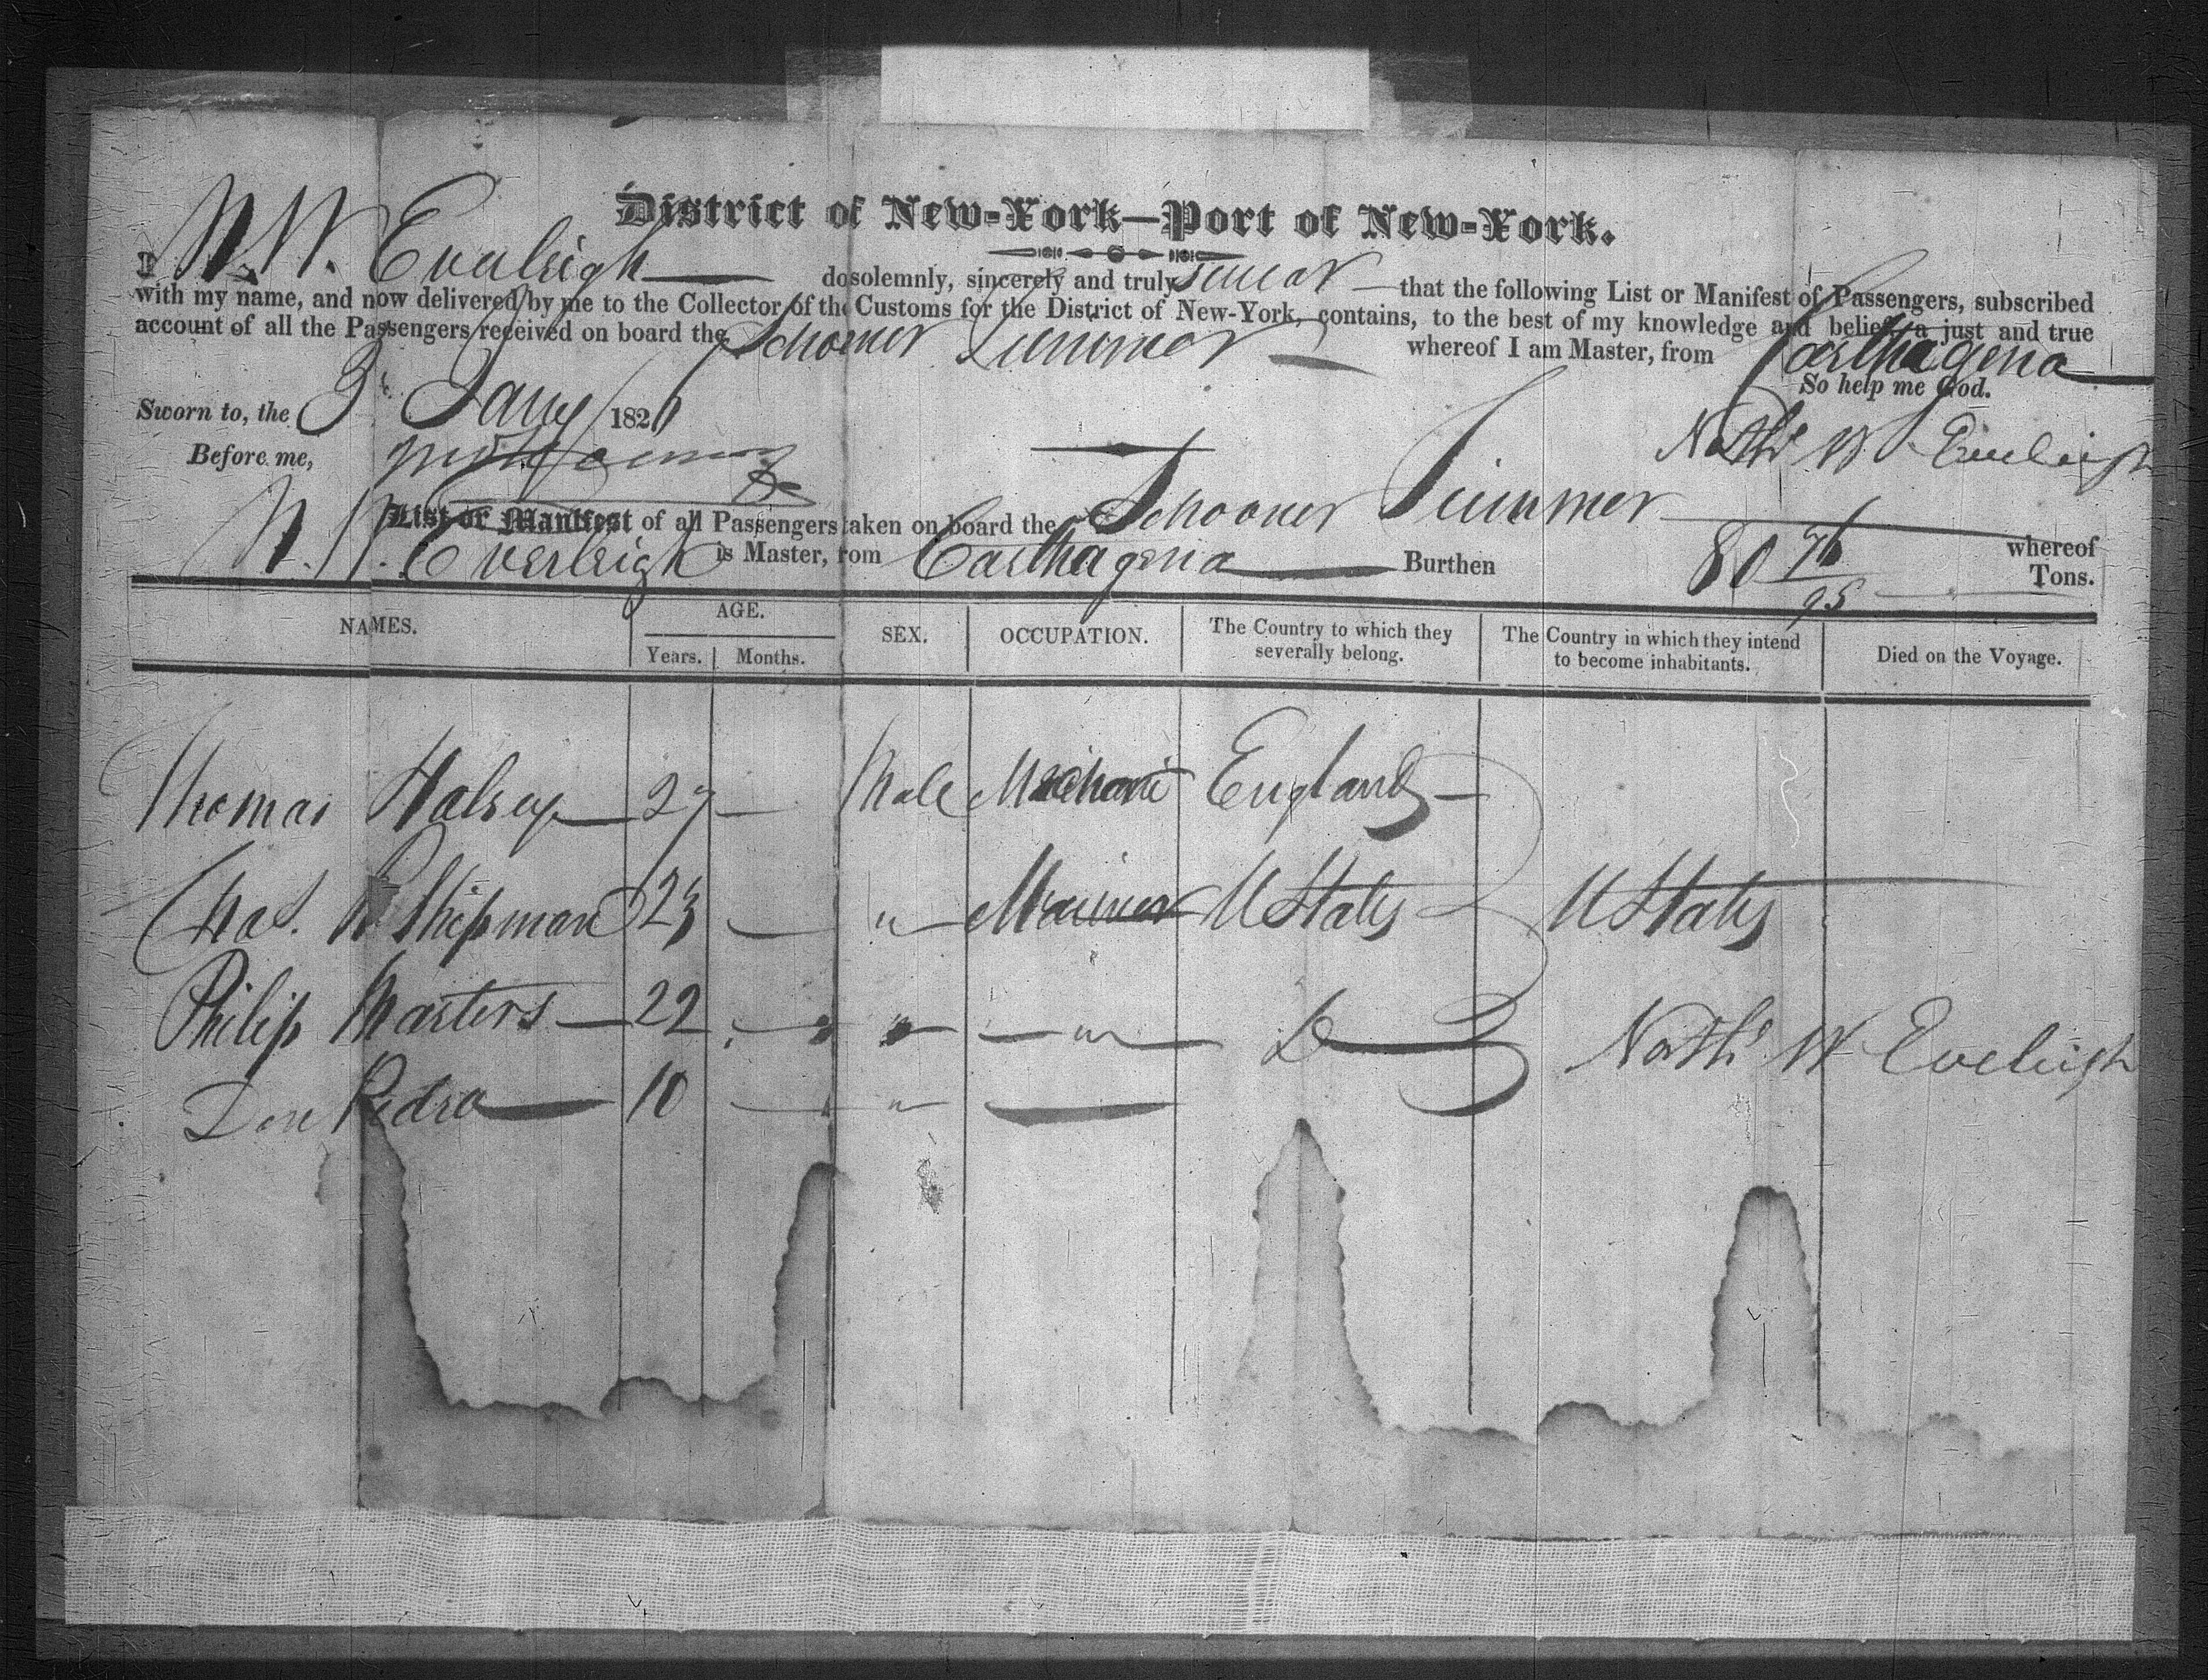 District of New-York—Port of New-York.
I N. W. Eveleigh do solemnly, sincerely and truly swear that the following List or Manifest of Passengers, subscribed
with my name, and now delivered by me to the Collector of the Customs for the District of New-York, contains, to the best of my knowledge and belief, a just and true
account of all the Passengers received on board the Schooner Summer whereof I am Master, from Carthagena
So help me God.
Sworn to, the 3 Jany 182
Before me,
Nathl W Eveleigh
List or Manifest of all Passengers taken on board the Schooner Summer whereof
N. W. Everleigh is Master, from Carthagena Burthen 80 76/95 Tons.
NAMES. AGE. Years. Months. SEX. OCCUPATION. The Country to which they severally belong. The Country in which they intend to become inhabitants. Died on the Voyage.
Thomas Halsey 27 Male Mechanic England
Chas. Shipman 23 " Mariner U States U States
Philip Masters 22 " " Do
Nathl W Eveleigh
Don Pedro 10 "